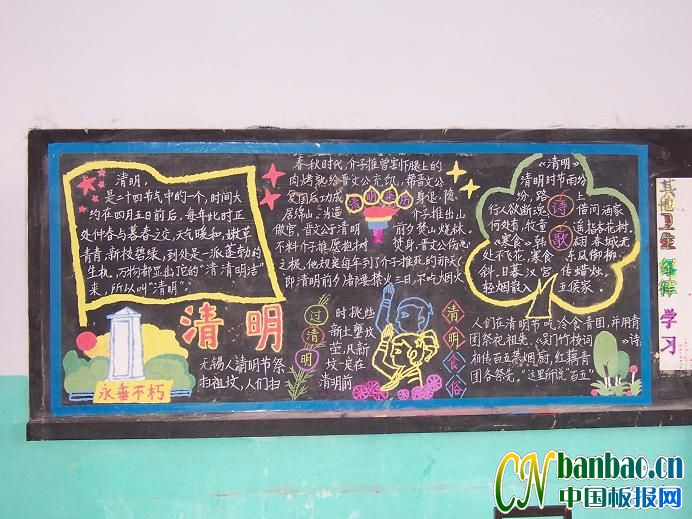 清明,
是二十四节气中的一个,时间大
约在四月五日前后,每年此时正
处仲春与暮春之交,天气暖和,嫩草
青青,新枝碧绿,到处是一派蓬勃的
生机,万物都显出它的“清清明洁”
来,所以叫“清明”。
清明
永垂不朽
无锡人清明节祭
扫祖坟,人们扫
春秋时代,介子推曾割下腿上的
肉烤熟给晋文公充饥,帮晋文公
复国后功成身退,隐
居绵山,为逼介子推出山
做官,晋文公于清明前夕焚山烧林,
不料介子推愿抱树焚身,晋文公伤心
之极,他规定每年到了介子推死的那天
即清明前夕诸严禁火三日,不吃烟火
清明来历
过清明
时挑些
新土壅坟
茔,凡新
坟一定在
清明前
清明食俗
《清明》
清明时节雨纷
纷,路上
行人欲断魂,借问酒家
何处有,牧童遥指杏花村。
《寒食》韩翃 春城无
处不飞花,寒食东风御柳
斜,日暮汉宫传蜡烛,
轻烟散入五侯家。
诗歌
人们在清明节吃冷食青团,并用青
团祭祀祖先,《吴门竹枝词》诗,
相传百五禁烟厨,红藕青
团各祭先,“这里所说”百五”
其他卫生
学习
CNbanbao.cn
中国板报网